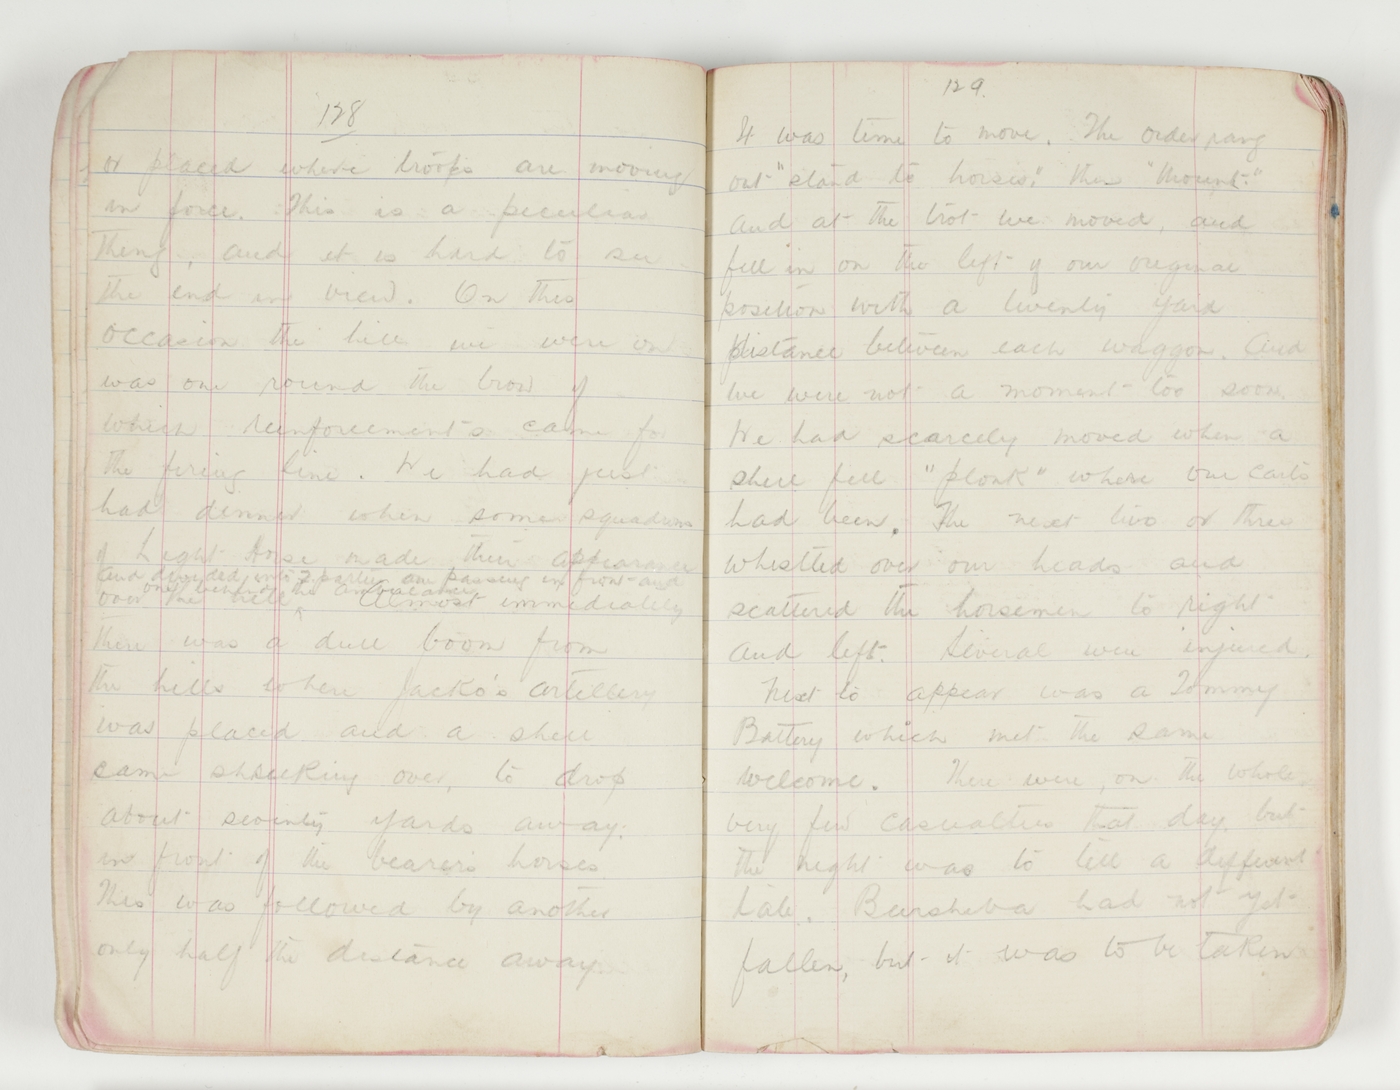 128
or placed where troops are moving
in force. This is a peculiar
thing, and it is hard to see
the end in view. On this
occasion the hill we were on
was one round the brow of
which reinforcements came for
the firing line. We had just
had dinner when some squadrons
of Light Horse made their appearance
and divided into 2 parties one passing in front and
one behind the ambulance
over the hill ^ Almost immediately
there was a dull boom from
the hills where Jacko's artillery
was placed and a shell
came shrieking over, to drop
about seventy yards away.
in front of the bearers horses.
This was followed by another
only half the distance away.
129.
It was time to move. The order rang
out "stand to horses," then "Mount."
and at the trot we moved, and
fell in on the left of our original
position with a twenty yard
distance between each waggon. And
we were not a moment too soon.
We had scarcely moved when a
shell fell "plonk" where our carts
had been. The next two or three
whistled over our heads and
scattered the horsemen to right
and left. Several were injured.
Next to appear was a Tommy
Battery which met the same
welcome. There were, on the whole,
very few casualties that day, but
the night was to tell a different
tale. Beersheba had not yet
fallen, but it was to be taken